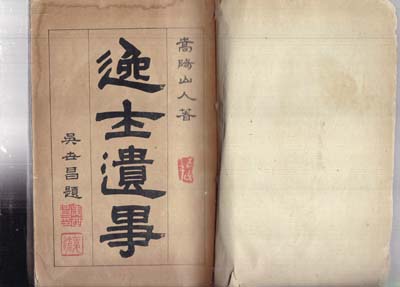 嵩陽山人著
逸士遺事
吳世昌題